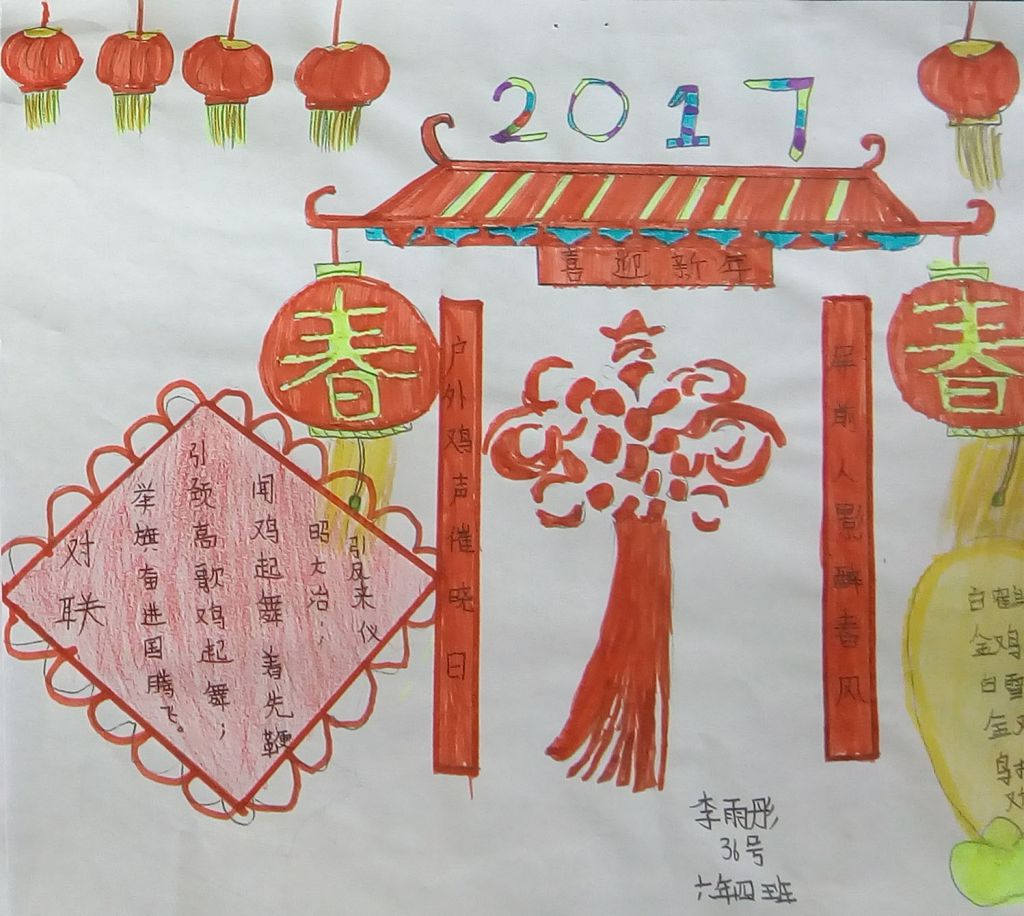 2017
喜迎新年
春
春
户外鸡声催晓日
屏前人影醉春风
对联
举旗奋进国腾飞。
引颈高歌鸡起舞；
闻鸡起舞 着先鞭
昭大治；
引凤来仪
白鹤
金鸡
白雪
金鸡
李雨彤
36号
六年四班